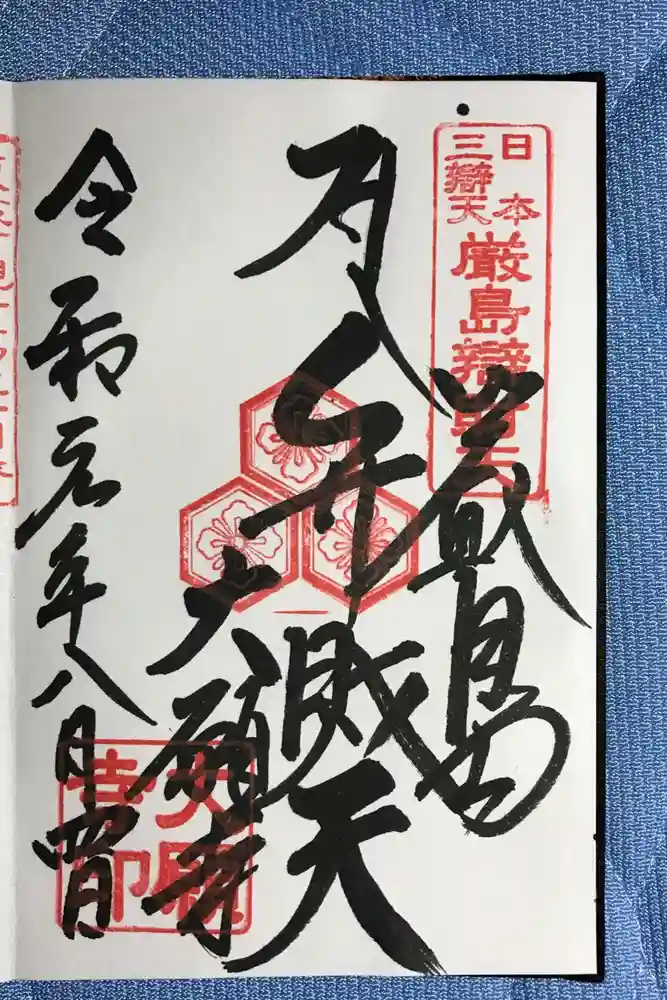 日本
三辯天
厳島辯財天
厳島
弁財天
大願寺
令和元年八月四日
大願
寺印